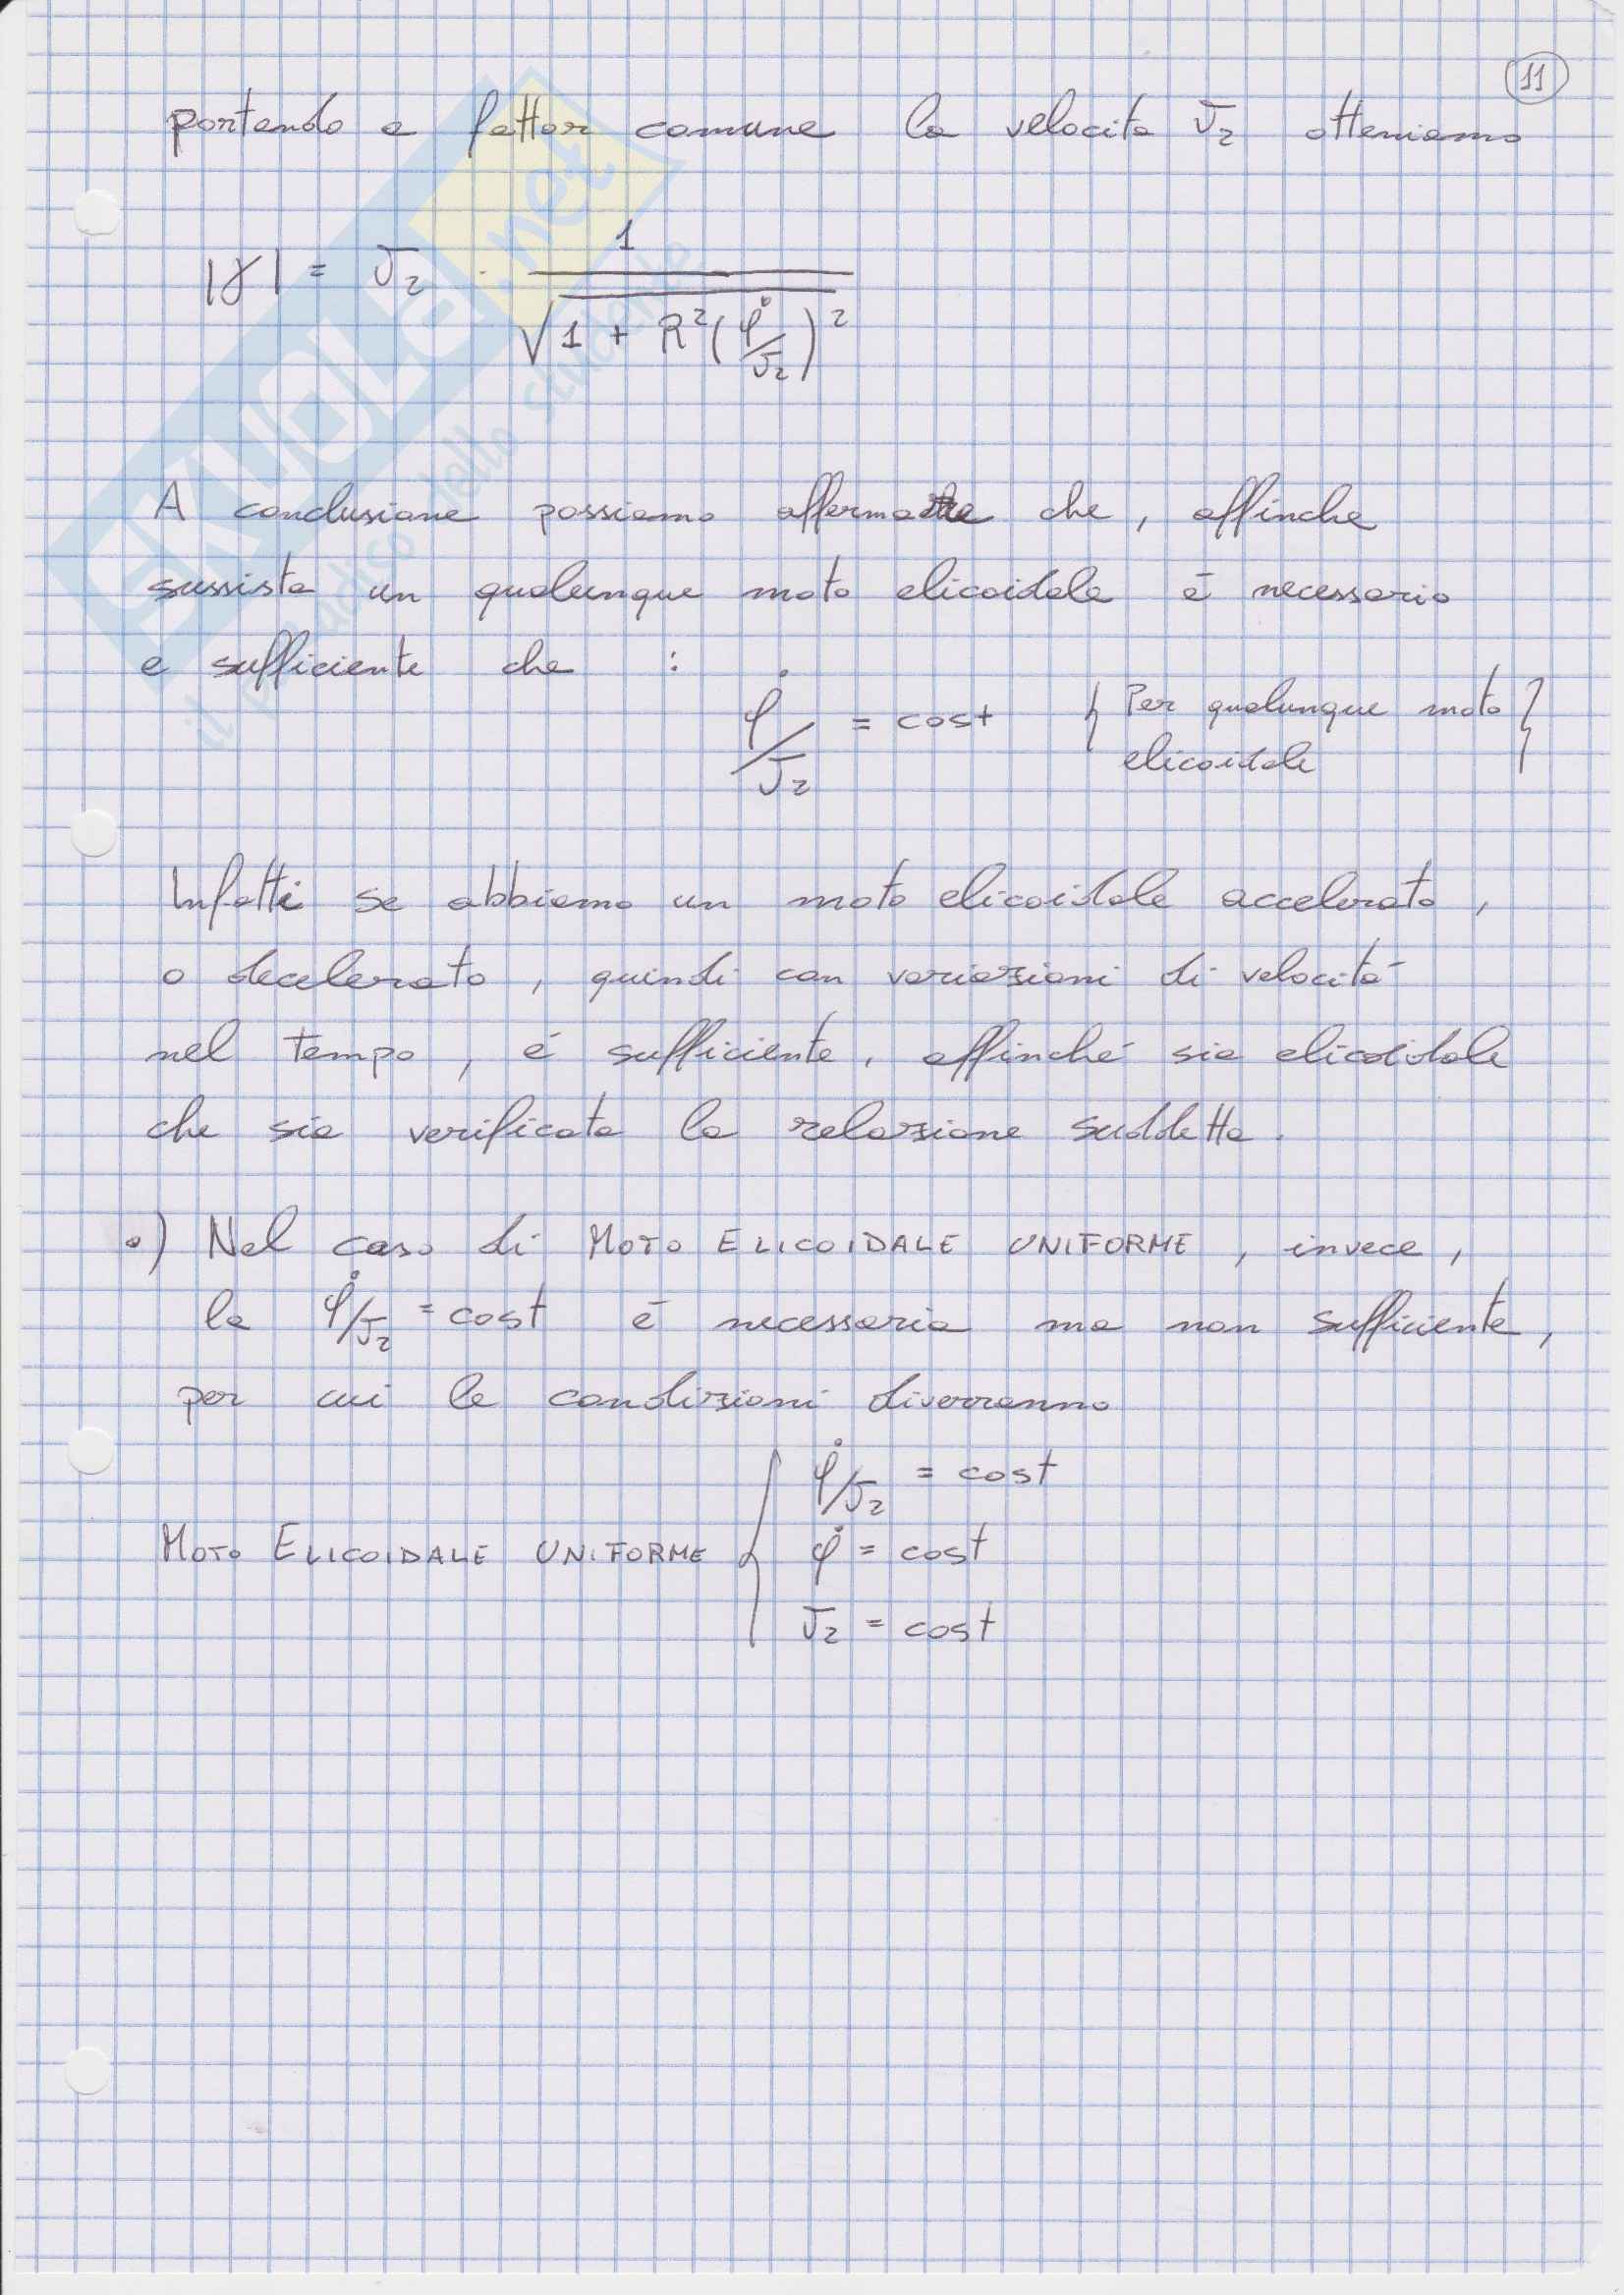 11
portando a fattor comune la velocita v₂ otteniamo
|γ| = v₂ · 1 / √(1 + R²(φ̇/v₂)²)
A conclusione possiamo affermare che, affinche
sussista un qualunque moto elicoidale é necessario
e sufficiente che :
φ̇/v₂ = cost { Per qualunque moto
elicoidale }
Infatti se abbiamo un moto elicoidale accelerato,
o decelerato, quindi con variazioni di velocitá
nel tempo, é sufficiente, affinché sia elicoidale
che sia verificata la relazione suddetta.
•) Nel caso di MOTO ELICOIDALE UNIFORME, invece,
la φ̇/v₂ = cost é necessaria ma non sufficiente,
per cui le condizioni diverranno
φ̇/v₂ = cost
MOTO ELICOIDALE UNIFORME { φ̇ = cost
v₂ = cost
SKUOLA.net
il paradiso dello studente